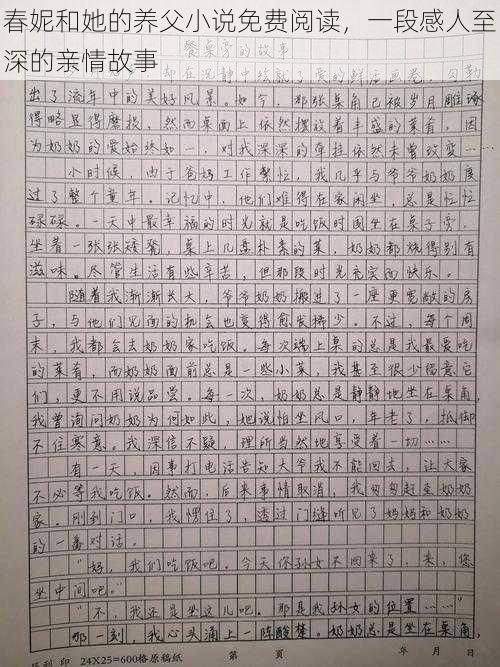 春妮和她的养父小说免费阅读，一段感人至
深的亲情故事
餐桌旁的故事
却在沉静中绘就了爱的鲜活画卷，勾勒
出了流年中的美好风景。如今，那张桌角已被岁月雕琢
得略显得磨损，然而桌面上依然摆放着丰盛的菜肴，因
为奶奶的爱始终如一，对我深深的牵挂依然未曾改变……
小时候，由于爸妈工作繁忙，我几乎与爷爷奶奶度
过了整个童年。记忆中，他们难得在家闲坐，总是忙忙
碌碌。一天中最幸福的时光就是吃饭时围坐在桌子旁，
坐着一张张矮凳，桌上几盘朴素的菜，奶奶都烧得别有
滋味。尽管生活有些辛苦，但那段时光充实而快乐。
随着我渐渐长大，爷爷奶奶搬进了一座更宽敞的房
子，与他们见面的机会也变得愈发稀少。不过，每个周
末，我都会去奶奶家吃饭。每次端上桌的总是我最爱吃
的菜肴，而奶奶面前总是一些小菜，我甚至很少留意它
们，更不用说品尝。每一次，奶奶总是静静地坐在桌角，
我曾询问奶奶为何如此，她说怕坐风口，年老了，抵御
不住寒意。我深信不疑，理所当然地享受着一切……
有一天，因事打电话告知大爷我不能回去，让大家
不必等我吃饭。然而，后来事情取消，我匆匆赶至奶奶
家。刚到门口，我愣住了，透过门缝听见了妈妈和奶奶
的一番对话。
“妈，我们吃饭吧。今天你孙女不回来了，来，您
坐中间吧。”
“不，我还是坐这儿吧。那是我孙女的位置……”
那一刻，我心头涌上一阵酸楚。奶奶总是坐在桌角，
印 24×25=600格原稿纸 第 页 年 月 日